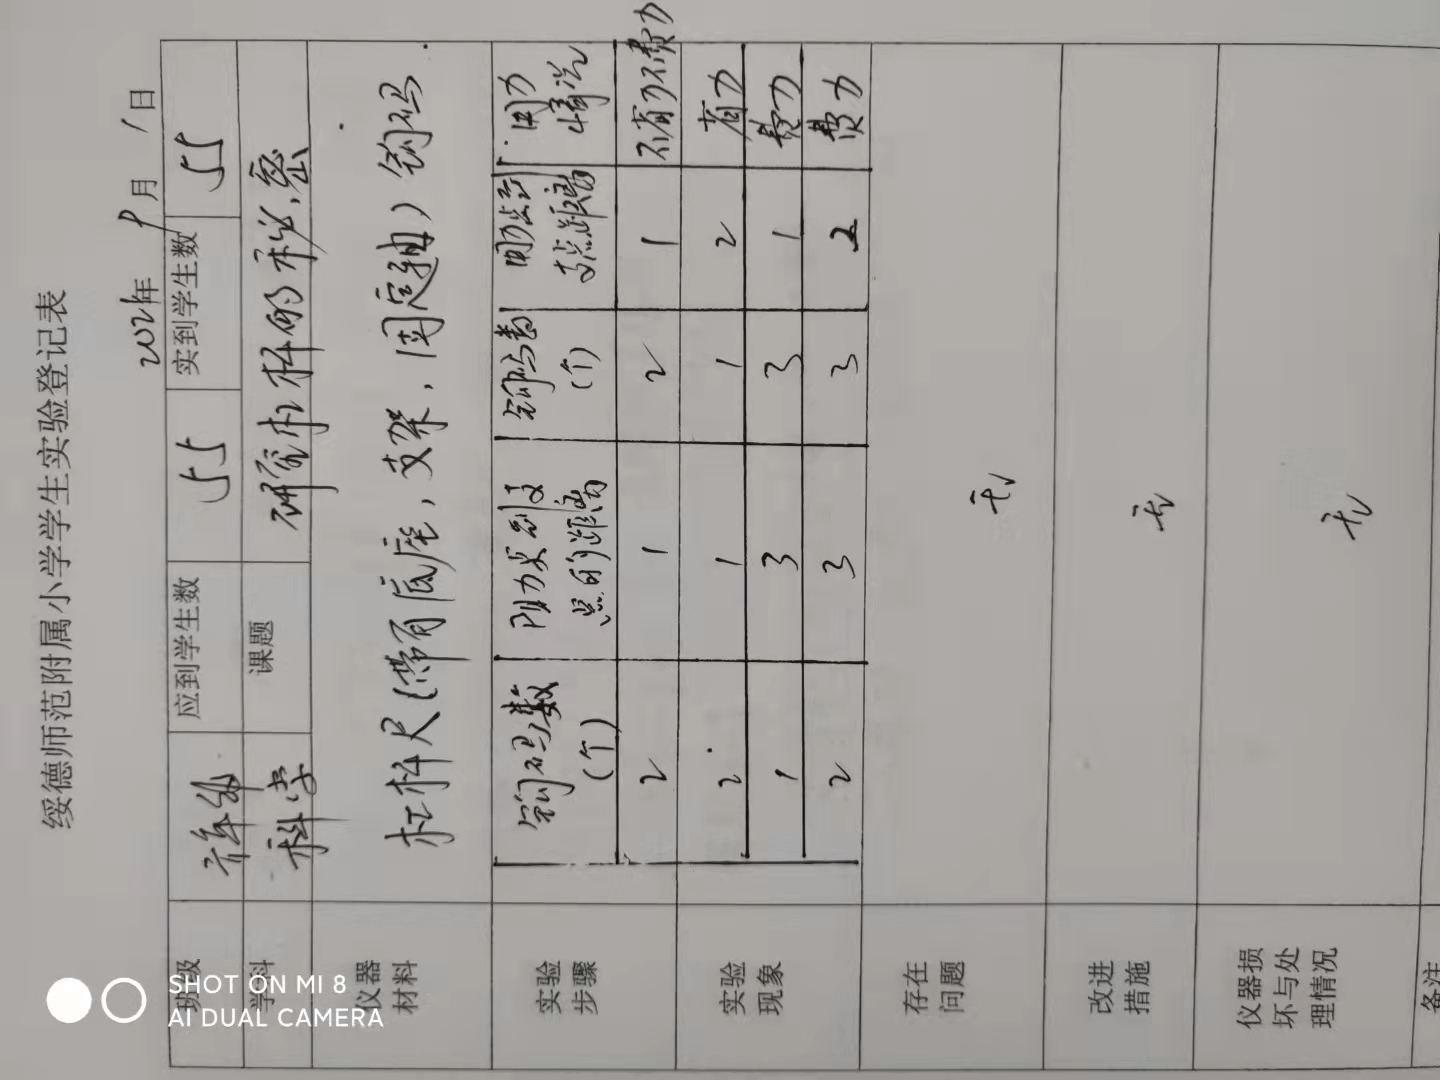 绥德师范附属小学学生实验登记表
202 年 9月 1日
班级 应到学生数 55 实到学生数 55
学科 科学 课题 研究杠杆的秘密
仪器材料 杠杆尺(带有底座,支架,固定轴)钩码
实验步骤
钩码数(个) 阻力点到支点的距离 钩码数(个) 用力点到支点距离 用力情况
2 1 2 1 不省力不费力
实验现象
2 1 1 2 省力
1 3 3 1 费力
2 3 3 2 费力
存在问题 无
改进措施 无
仪器损坏与处理情况 无
备注
SHOT ON MI 8
AI DUAL CAMERA